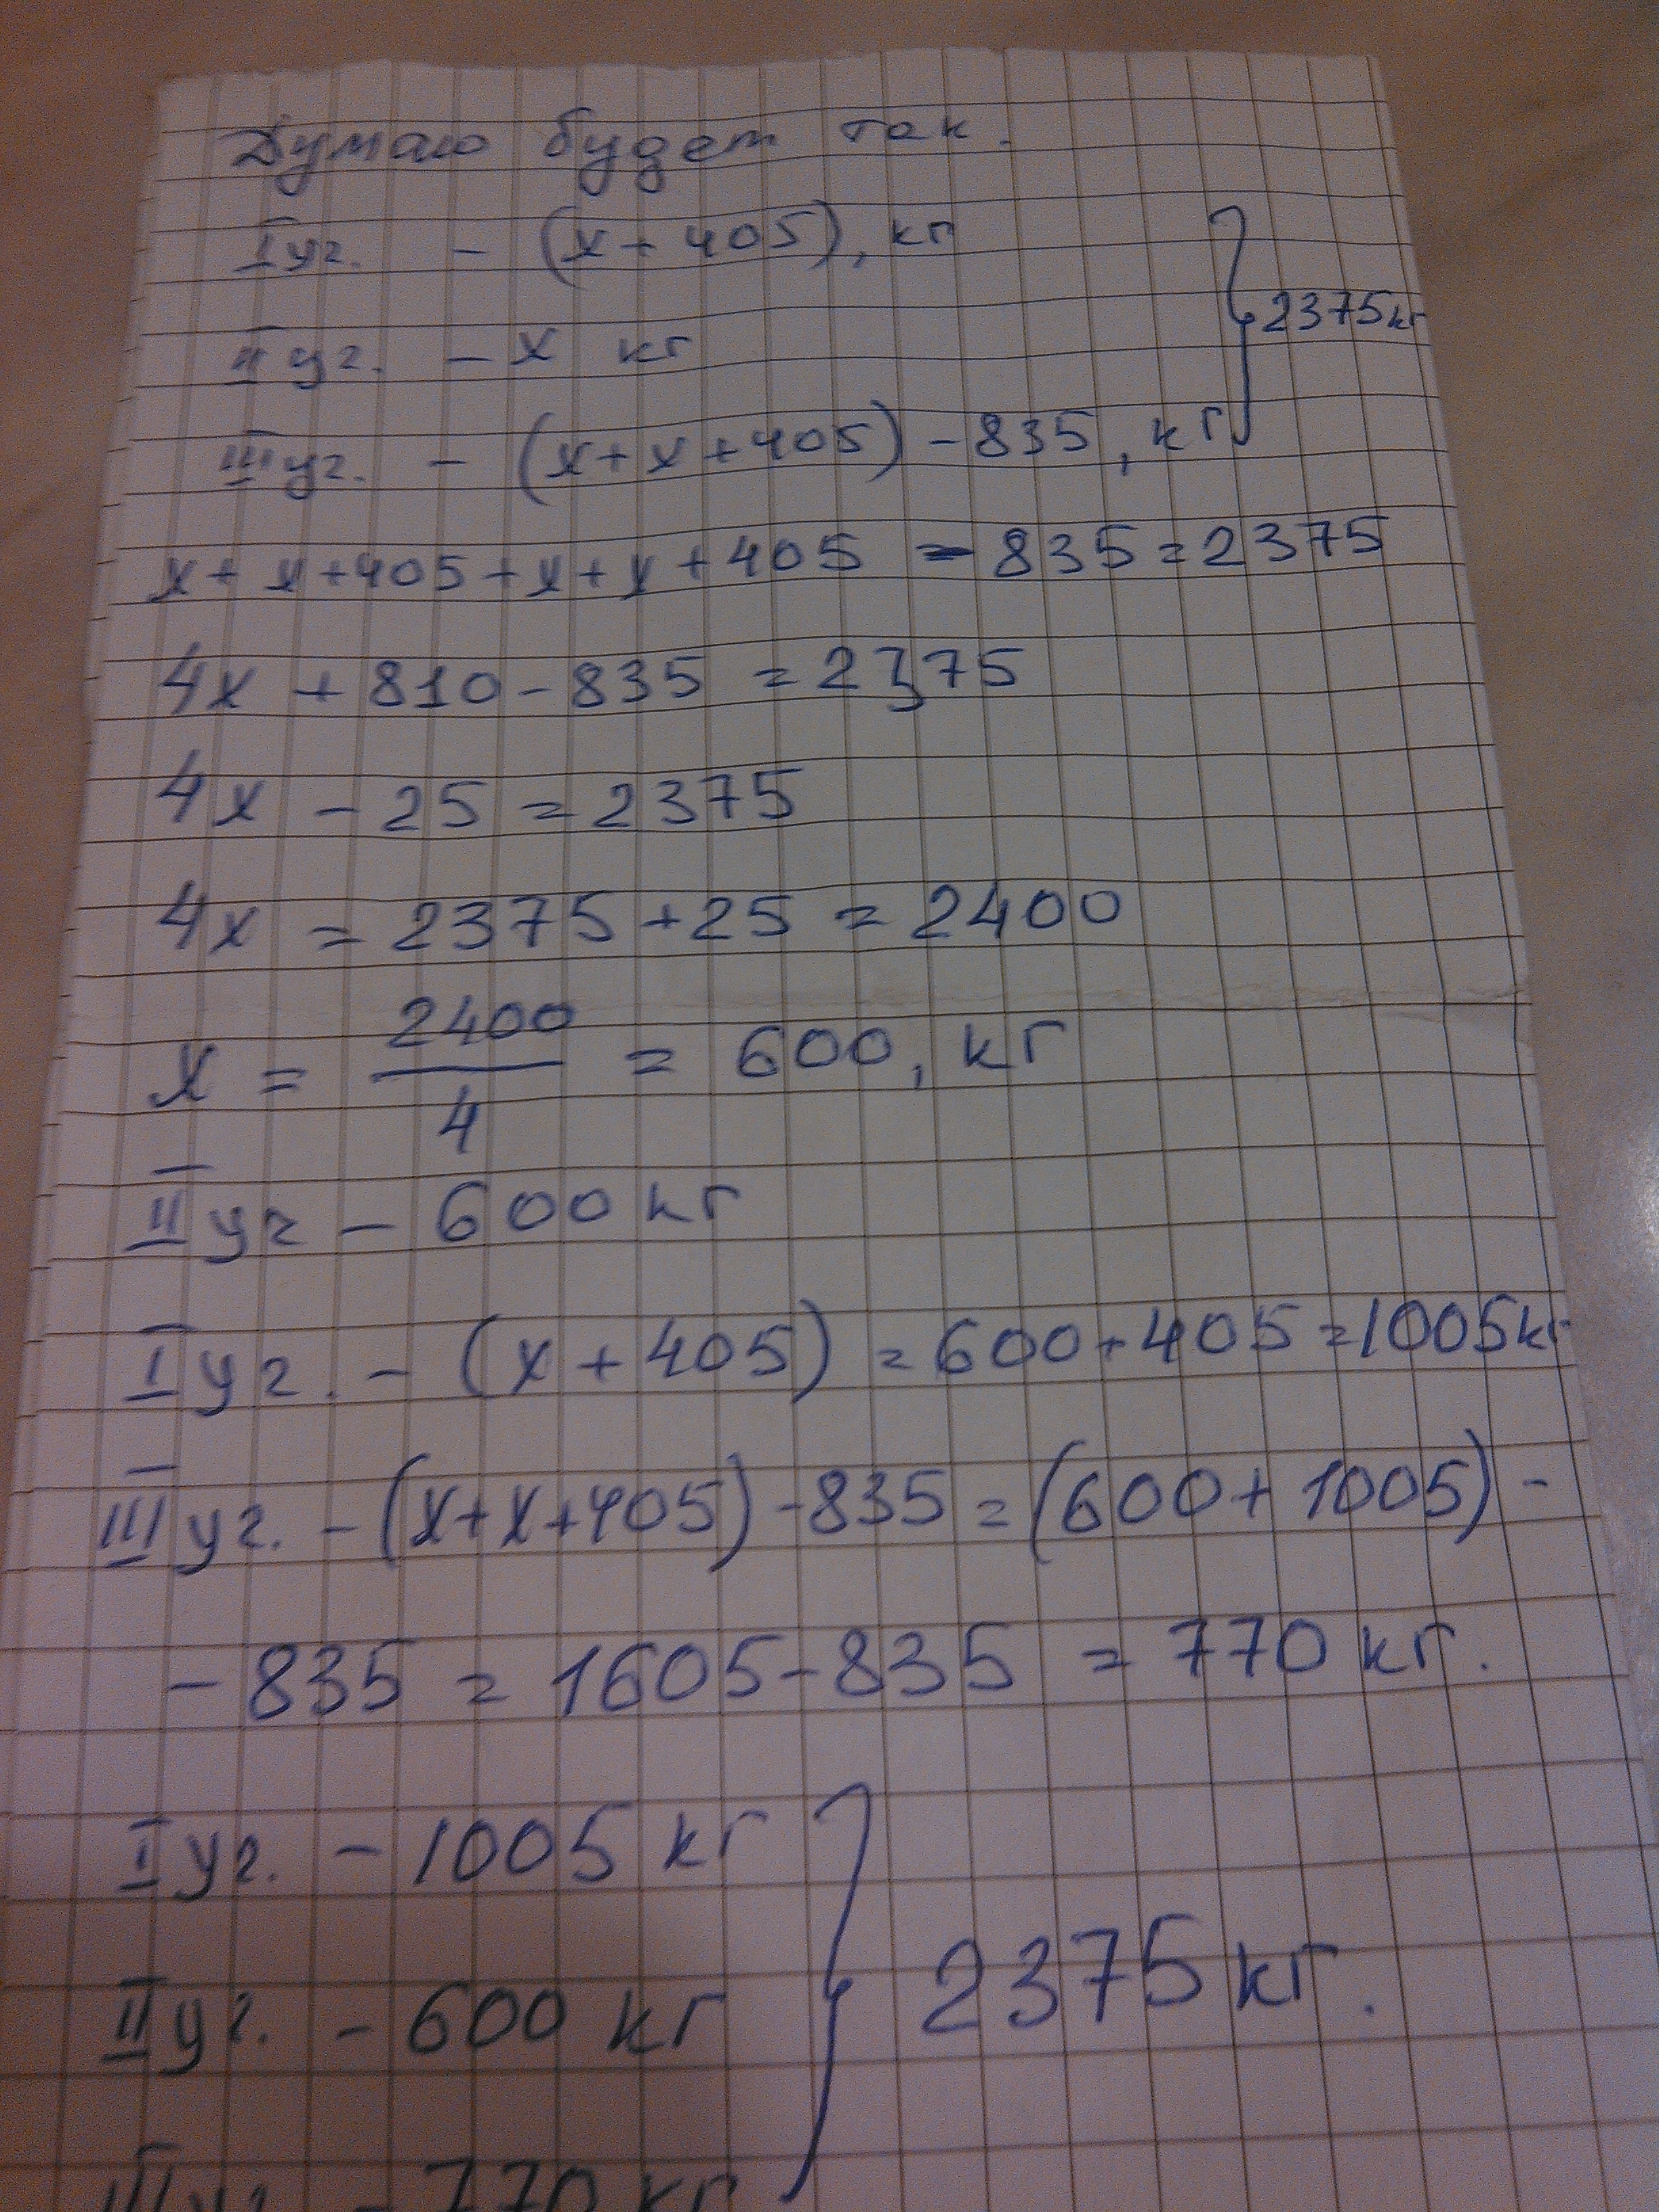 Думаю будет так.
I уч. - (x + 405), кг
II уч. - x кг
2375 кг
III уч. - (x + x + 405) - 835, кг
x + x + 405 + x + x + 405 - 835 = 2375
4x + 810 - 835 = 2375
4x - 25 = 2375
4x = 2375 + 25 = 2400
x = 2400/4 = 600, кг
II уч - 600 кг
I уч. - (x + 405) = 600 + 405 = 1005 кг
III уч. - (x + x + 405) - 835 = (600 + 1005) -
- 835 = 1605 - 835 = 770 кг.
I уч. - 1005 кг
II уч. - 600 кг
2375 кг.
III уч. - 770 кг